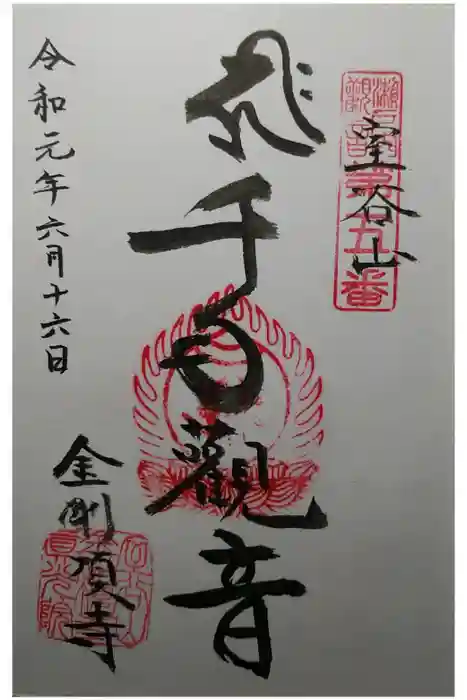 室谷山
第五番
千手觀音
金剛頂寺
令和元年六月十六日